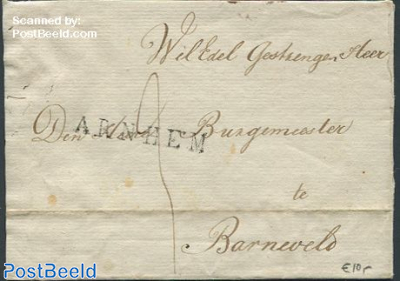 Scanned by:
PostBeeld.com
Wel Edel Gestrenge Heer
Den Heer Burgemeester
ARNHEM
te
Barneveld
€10,-
PostBeeld